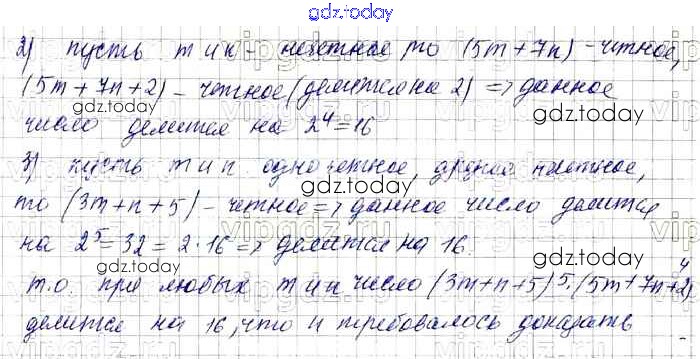 gdz.today
2) пусть m и n - нечетное, то (5m + 7n) - четное,
(5m + 7n + 2) - четное (делится на 2) => данное
число делится на 2⁴ = 16
3) пусть m и n одно четное, другое нечетное,
то (3m + n + 5) - четное => данное число делится
на 2⁵ = 32 = 2 · 16 => делится на 16.
т.о. при любых m и n число (3m + n + 5)⁵ · (5m + 7n + 2)⁴
делится на 16, что и требовалось доказать
gdz.today
gdz.today
gdz.today
gdz.today
gdz.today